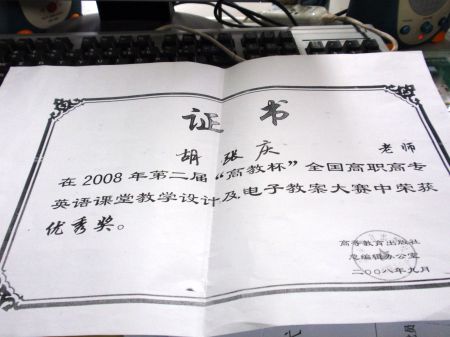 证书
胡张庆 老师
在2008年第二届“高教杯”全国高职高专
英语课堂教学设计及电子教案大赛中荣获
优秀奖。
高等教育出版社
总编辑办公室
二〇〇八年九月